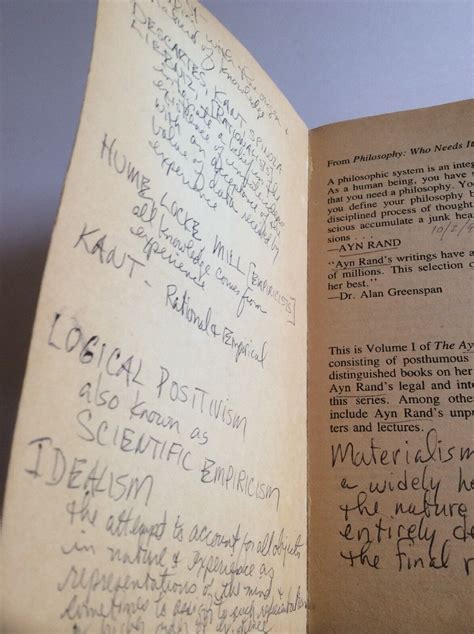 of knowledge
DESCARTES, KANT, SPINOZA
LIEBNITZ, [RATIONALISTS]
existence of
with
value of data received by
experience
HUME, LOCKE, MILL [EMPIRICISTS]
all knowledge comes from
experience
KANT - Rational & Empirical
LOGICAL POSITIVISM
also known as
SCIENTIFIC EMPIRICISM
IDEALISM
the attempt to account for all objects
in nature & experience as
representations of the mind &
sometimes to assign to such representations
a higher order of existence
From Philosophy: Who Needs It
A philosophic system is an integ
As a human being, you have
that you need a philosophy. Y
you define your philosophy b
disciplined process of thought
scious accumulate a junk hea
sions . . . 10/2/9
—AYN RAND
"Ayn Rand's writings have a
of millions. This selection c
her best."
—Dr. Alan Greenspan
This is Volume I of The Ay
consisting of posthumous
distinguished books on her
Ayn Rand's legal and intel
this series. Among other
include Ayn Rand's unpu
ters and lectures.
Materialism
a widely he
the nature
entirely de
the final r